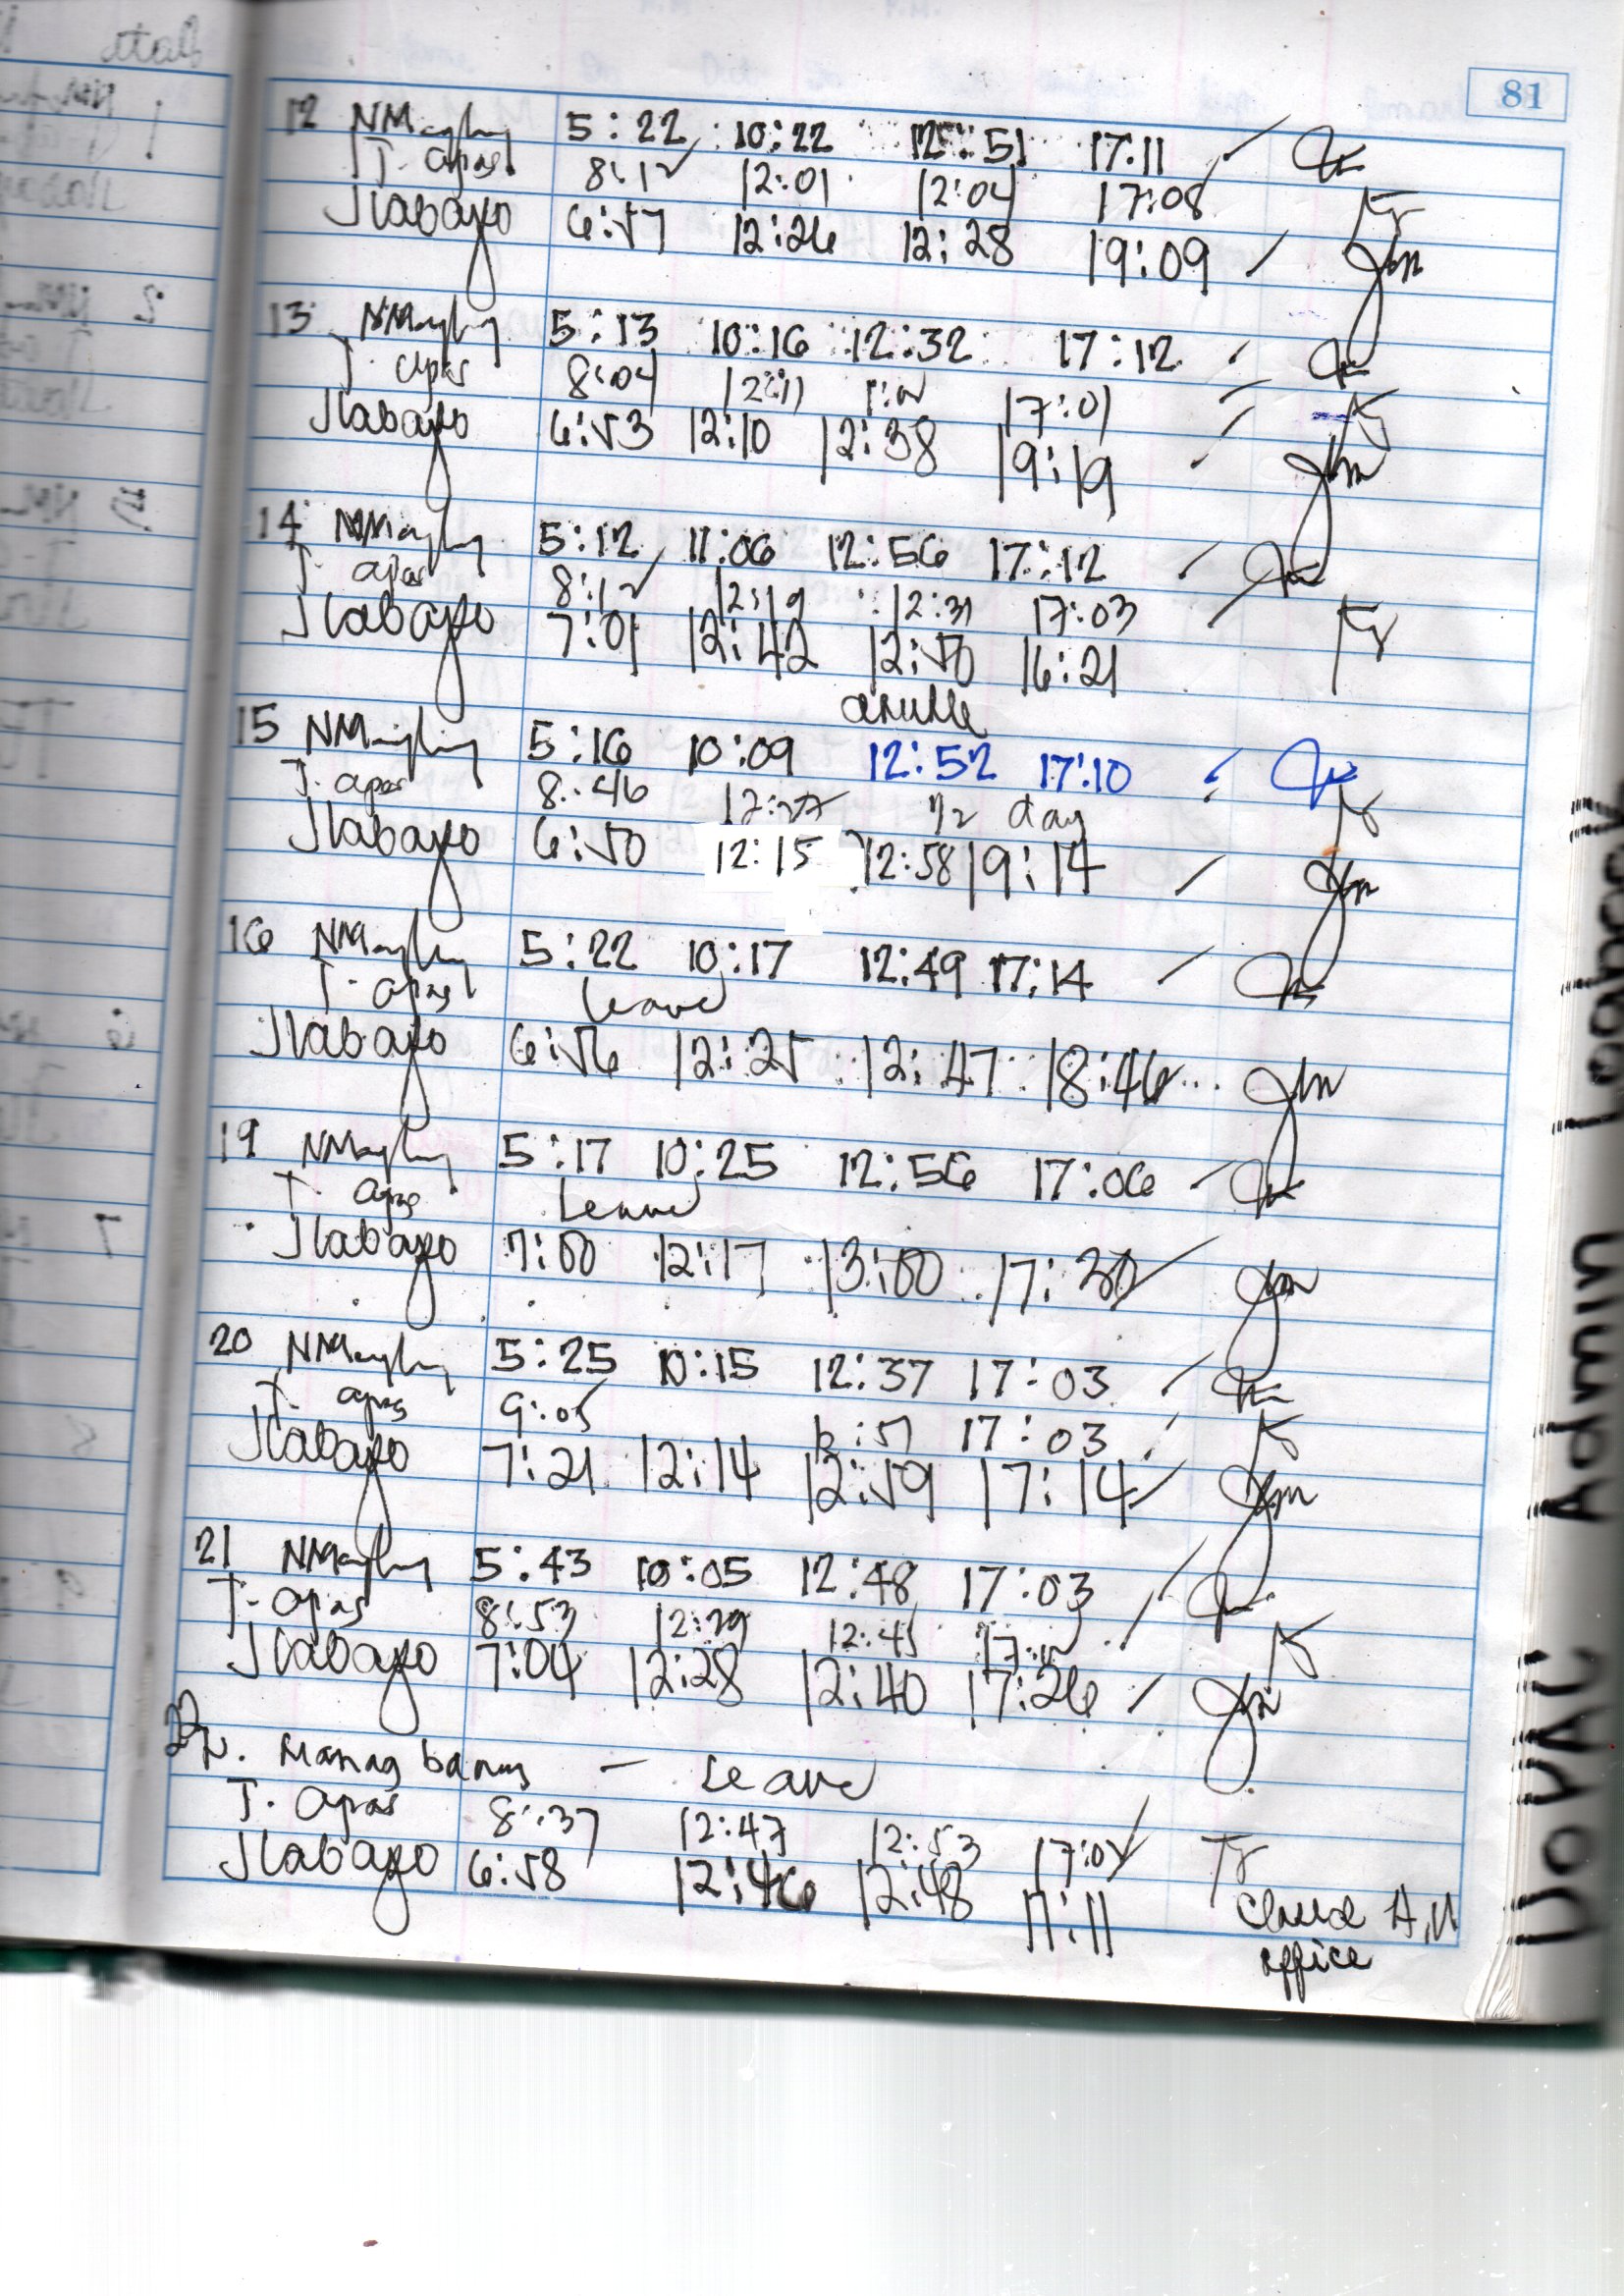 81
12 5:22 10:22 12:51 17:11
T. apas 8:12 12:01 12:04 17:08
JLabayo 6:57 12:26 12:28 19:09
13 5:13 10:16 12:32 17:12
T. apas 8:04 12:11 17:01
JLabayo 6:53 12:10 12:38 19:19
14 5:12 11:06 12:56 17:12
T. apas 8:12 12:19 12:31 17:03
JLabayo 7:01 12:42 12:50 16:21
15 5:16 10:09 12:52 17:10
T. apas 8:46 12:27 1/2 day
JLabayo 6:50 12:15 12:58 19:14
16 5:22 10:17 12:49 17:14
T. apas leave
JLabayo 6:56 12:25 12:47 18:46
19 5:17 10:25 12:56 17:06
T. apas Leave
JLabayo 7:00 12:17 13:00 17:30
20 5:25 10:15 12:37 17:03
T. apas 9:05 17:03
JLabayo 7:21 12:14 12:59 17:14
21 5:43 10:05 12:48 17:03
T. apas 8:53 12:29 12:45
JLabayo 7:04 12:28 12:40 17:26
22 N. Manag banas - Leave
T. apas 8:37 12:47 12:53
JLabayo 6:58 12:46 12:48 17:11
office
Admin